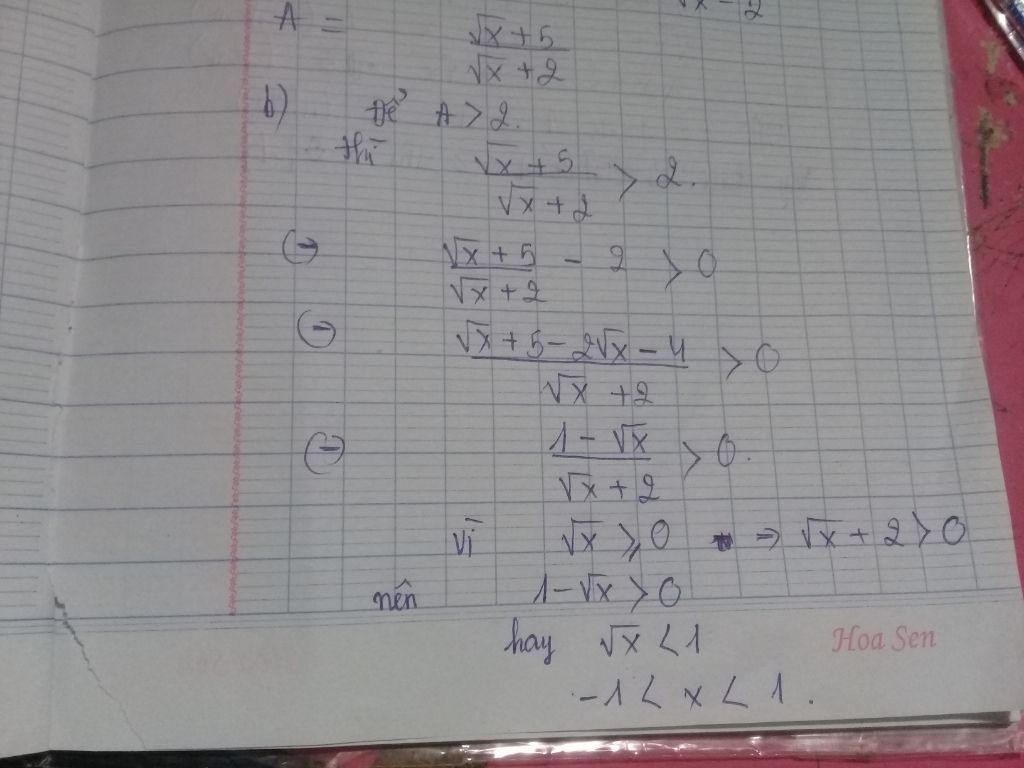 √x - 2
A = (√x + 5)/(√x + 2)
b) Để A > 2.
thì (√x + 5)/(√x + 2) > 2.
⇔ (√x + 5)/(√x + 2) - 2 > 0
⇔ (√x + 5 - 2√x - 4)/(√x + 2) > 0
⇔ (1 - √x)/(√x + 2) > 0.
Vì √x ⩾ 0 ⇒ √x + 2 > 0
nên 1 - √x > 0
hay √x < 1
Hoa Sen
-1 < x < 1.